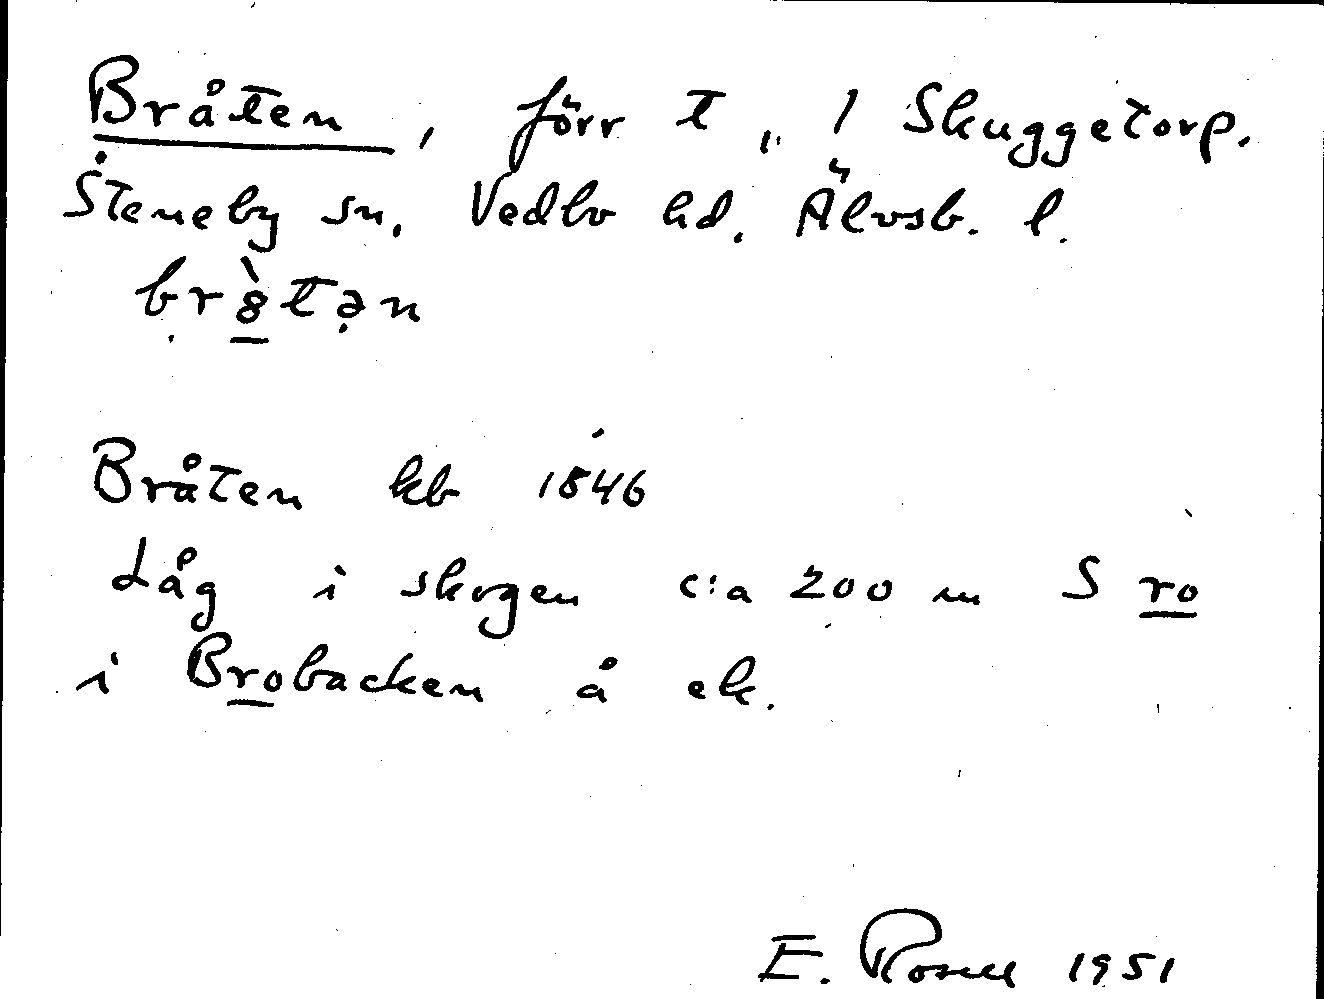 Bråten, förr t „ / Skuggetorp.
Steneby sn. Vedbo hd. Älvsb. l.
br8̀tən
Bråten kb 1846
Låg i skogen c:a 200 m S ro
i Brobacken å ek.
E. 1951